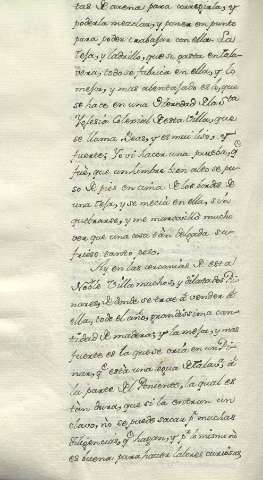 tas de arena para corregirla, y
poderla mezclar, y poner en punto
para poder trabajar con ella. La
teja, y ladrillo, que se gasta en tala-
vera, todo se fabrica en ella, y lo
mejor, y mas abentajado es a, que
se hace en una Heredad de la Sta
Yglesia Colexial de esta Villa, que
se llama Beas, y es mui liso, y
fuerte; Yo vi hacer una prueba, q
fuè, que un hombre bien alto se pu-
so de pies en cima de los bordes de
una teja, y se mecia en ella, sin
quebrarse, y me maravillò mucho
ver que una cosa tan delgada su-
friese tanto peso.
Ay en las cercanias de esta
Noble Villa muchos, y dilatados Pi-
nares, de donde se trae à vender à
ella, todo el año, grandissima can-
tidad de madera; y la mejor, y mas
fuerte es la que se cria en un Pi-
nar, q està una legua de Talavà, à
la parte del Poniente, la qual es
tan dura, que si la entran un
clavo, no se puede sacar pr muchas
diligencias, q hagan, y pr lo mismo no
es buena para hacer labores curiosas